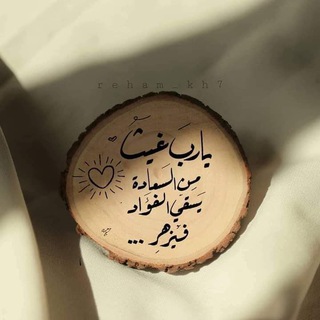 reham_kh7
يا ربَ غيثُا
مِن السعادة
يسقي الفؤاد
فيزهِر ...